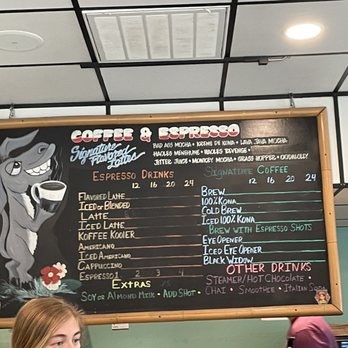 COFFEE & ESPRESSO
Signature Flavored Lattes
BAD ASS MOCHA • KREME DE KONA • LAVA JAVA MOCHA
HAOLES MENEHUNE • HAOLES REVENGE •
JITTER JUICE • MONKEY MOCHA • GRASS HOPPER •
ESPRESSO DRINKS
12 16 20 24
FLAVORED LATTE
ICED OR BLENDED
LATTE
ICED LATTE
KOFFEE KOOLER
AMERICANO
ICED AMERICANO
CAPPUCCINO
ESPRESSO 1 2 3 4
EXTRAS
SOY OR ALMOND MILK • ADD SHOT •
SIGNATURE COFFEE
12 16 20 24
BREW
100% KONA
COLD BREW
ICED 100% KONA
BREW WITH ESPRESSO SHOTS
EYE OPENER
ICED EYE OPENER
BLACK WIDOW
OTHER DRINKS
STEAMER/HOT CHOCOLATE •
CHAI • SMOOTHIE • ITALIAN SODA